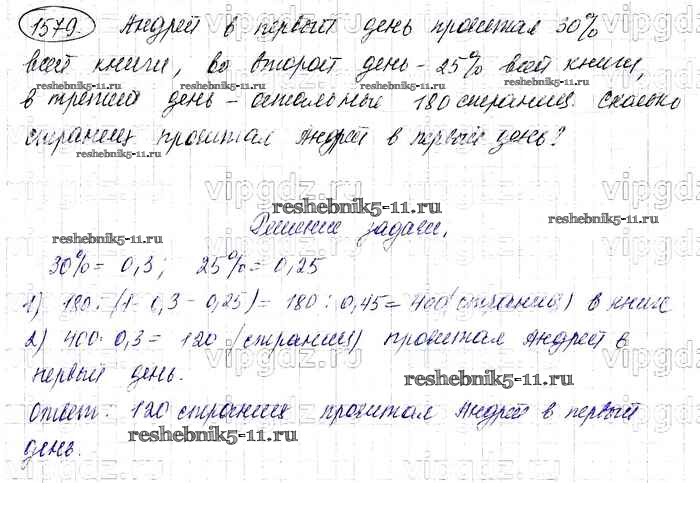 1579. Андрей в первый день прочитал 30%
всей книги, во второй день - 25% всей книги,
reshebnik5-11.ru
в третий день - остальные 180 страниц. Сколько
страниц прочитал Андрей в первый день?
reshebnik5-11.ru
vipgdz.ru
reshebnik5-11.ru
reshebnik5-11.ru
Решение задачи.
reshebnik5-11.ru
30% = 0,3; 25% = 0,25
1) 180 : (1 - 0,3 - 0,25) = 180 : 0,45 = 400 (страниц) в книге
2) 400 · 0,3 = 120 (страниц) прочитал Андрей в
первый день.
reshebnik5-11.ru
Ответ: 120 страниц прочитал Андрей в первый
reshebnik5-11.ru
день.
vipgdz.ru